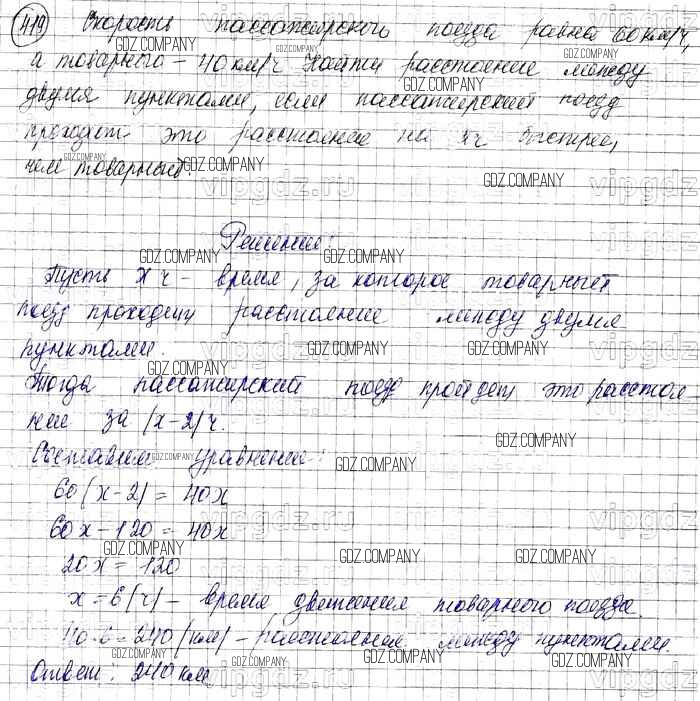 419 Скорость пассажирского поезда равна 60 км/ч,
а товарного – 40 км/ч. Найти расстояние между
двумя пунктами, если пассажирский поезд
проходит это расстояние на ч быстрее,
чем товарный.
Решение:
Пусть х ч – время, за которое товарный
поезд проходит расстояние между двумя
пунктами.
Тогда пассажирский поезд пройдет это расстоя
ние за (х-2) ч.
Составим уравнение:
60(х-2) = 40х
60х-120 = 40х
20х = 120
х = 6 (ч) – время движения товарного поезда.
40·6=240 (км) – расстояние между пунктами.
Ответ: 240 км
GDZ.COMPANY
vipgdz.ru